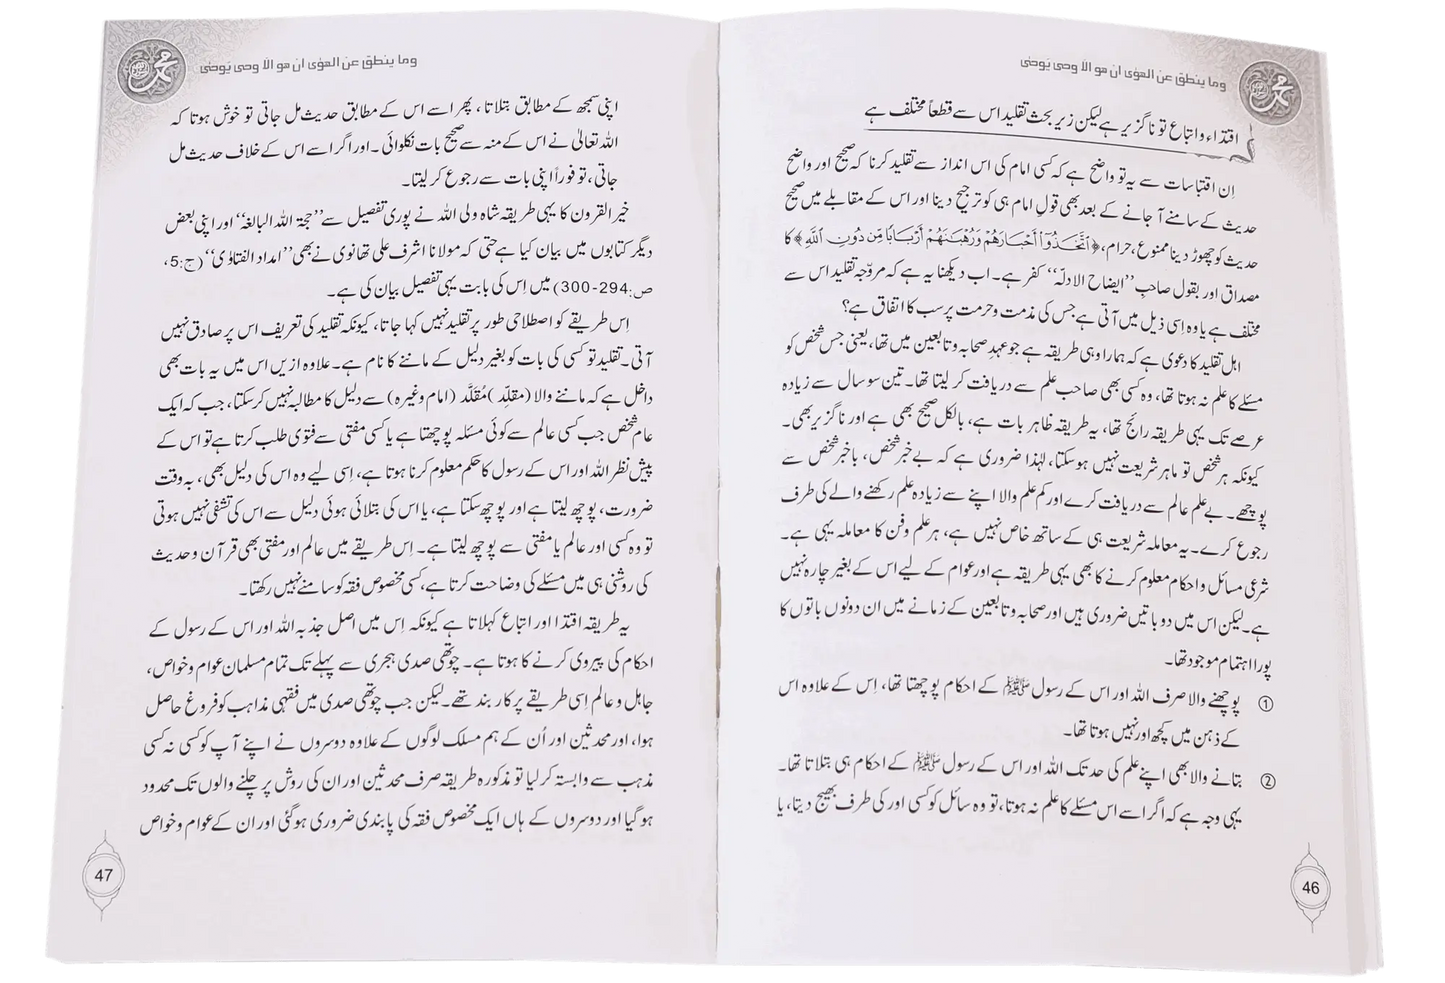 وما ينطق عن الهوٰى ان هو الا وحى يوحىٰ
اقتداء واتباع تو ناگزیر ہے لیکن زیر بحث تقلید اس سے قطعاً مختلف ہے
اِن اقتباسات سے یہ تو واضح ہے کہ کسی امام کی اس انداز سے تقلید کرنا کہ صحیح اور واضح
حدیث کے سامنے آ جانے کے بعد بھی قولِ امام ہی کو ترجیح دینا اور اس کے مقابلے میں صحیح
حدیث کو چھوڑ دینا ممنوع، حرام، ﴿ٱتَّخَذُوٓا۟ أَحْبَارَهُمْ وَرُهْبَٰنَهُمْ أَرْبَابًا مِّن دُونِ ٱللَّهِ﴾ کا
مصداق اور بقول صاحبِ ’’ایضاح الادلہ‘‘ کفر ہے۔ اب دیکھنا یہ ہے کہ مروّجہ تقلید اس سے
مختلف ہے یا وہ اِسی ذیل میں آتی ہے جس کی مذمت و حرمت پر سب کا اتفاق ہے؟
اہل تقلید کا دعویٰ ہے کہ ہمارا وہی طریقہ ہے جو عہدِ صحابہ و تابعین میں تھا، یعنی جس شخص کو
مسئلے کا علم نہ ہوتا تھا، وہ کسی بھی صاحب علم سے دریافت کر لیتا تھا۔ تین سو سال سے زیادہ
عرصے تک یہی طریقہ رائج تھا، یہ طریقہ ظاہر بات ہے، بالکل صحیح بھی ہے اور ناگزیر بھی۔
کیونکہ ہر شخص تو ماہر شریعت نہیں ہو سکتا، لہٰذا ضروری ہے کہ بے خبر شخص، باخبر شخص سے
پوچھے۔ بے علم عالم سے دریافت کرے اور کم علم والا اپنے سے زیادہ علم رکھنے والے کی طرف
رجوع کرے۔ یہ معاملہ شریعت ہی کے ساتھ خاص نہیں ہے، ہر علم وفن کا معاملہ یہی ہے۔
شرعی مسائل و احکام معلوم کرنے کا بھی یہی طریقہ ہے اور عوام کے لیے اس کے بغیر چارہ نہیں
ہے۔ لیکن اس میں دو باتیں ضروری ہیں اور صحابہ و تابعین کے زمانے میں ان دونوں باتوں کا
پورا اہتمام موجود تھا۔
① پوچھنے والا صرف اللہ اور اس کے رسول ﷺ کے احکام پوچھتا تھا، اِس کے علاوہ اس
کے ذہن میں کچھ اور نہیں ہوتا تھا۔
② بتانے والا بھی اپنے علم کی حد تک اللہ اور اس کے رسول ﷺ کے احکام ہی بتلاتا تھا۔
یہی وجہ ہے کہ اگر اسے اس مسئلے کا علم نہ ہوتا، تو وہ سائل کو کسی اور کی طرف بھیج دیتا، یا
46
وما ينطق عن الهوٰى ان هو الا وحى يوحىٰ
اپنی سمجھ کے مطابق بتلاتا، پھر اسے اس کے مطابق حدیث مل جاتی تو خوش ہوتا کہ
اللہ تعالیٰ نے اس کے منہ سے صحیح بات نکلوائی۔ اور اگر اسے اس کے خلاف حدیث مل
جاتی، تو فوراً اپنی بات سے رجوع کر لیتا۔
خیر القرون کا یہی طریقہ شاہ ولی اللہ نے پوری تفصیل سے ’’حجۃ اللہ البالغہ‘‘ اور اپنی بعض
دیگر کتابوں میں بیان کیا ہے حتی کہ مولانا اشرف علی تھانوی نے بھی ’’امداد الفتاوٰی‘‘ (ج:5،
ص:294-300) میں اِس کی بابت یہی تفصیل بیان کی ہے۔
اِس طریقے کو اصطلاحی طور پر تقلید نہیں کہا جاتا، کیونکہ تقلید کی تعریف اس پر صادق نہیں
آتی۔ تقلید تو کسی کی بات کو بغیر دلیل کے ماننے کا نام ہے۔ علاوہ ازیں اس میں یہ بات بھی
داخل ہے کہ ماننے والا (مقلِّد) مُقَلَّد (امام وغیرہ) سے دلیل کا مطالبہ نہیں کر سکتا، جب کہ ایک
عام شخص جب کسی عالم سے کوئی مسئلہ پوچھتا ہے یا کسی مفتی سے فتویٰ طلب کرتا ہے تو اس کے
پیش نظر اللہ اور اس کے رسول کا حکم معلوم کرنا ہوتا ہے، اِسی لیے وہ اس کی دلیل بھی، بہ وقت
ضرورت، پوچھ لیتا ہے اور پوچھ سکتا ہے، یا اس کی بتلائی ہوئی دلیل سے اس کی تشفی نہیں ہوتی
تو وہ کسی اور عالم یا مفتی سے پوچھ لیتا ہے۔ اِس طریقے میں عالم اور مفتی بھی قرآن و حدیث
کی روشنی ہی میں مسئلے کی وضاحت کرتا ہے، کسی مخصوص فقہ کو سامنے نہیں رکھتا۔
یہ طریقہ اقتدا اور اتباع کہلاتا ہے کیونکہ اِس میں اصل جذبہ اللہ اور اس کے رسول کے
احکام کی پیروی کرنے کا ہوتا ہے۔ چوتھی صدی ہجری سے پہلے تک تمام مسلمان عوام وخواص،
جاہل و عالم اِسی طریقے پر کاربند تھے۔ لیکن جب چوتھی صدی میں فقہی مذاہب کو فروغ حاصل
ہوا، اور محدثین اور اُن کے ہم مسلک لوگوں کے علاوہ دوسروں نے اپنے آپ کو کسی نہ کسی
مذہب سے وابستہ کر لیا تو مذکورہ طریقہ صرف محدثین اور ان کی روش پر چلنے والوں تک محدود
ہو گیا اور دوسروں کے ہاں ایک مخصوص فقہ کی پابندی ضروری ہو گئی اور ان کے عوام وخواص
47